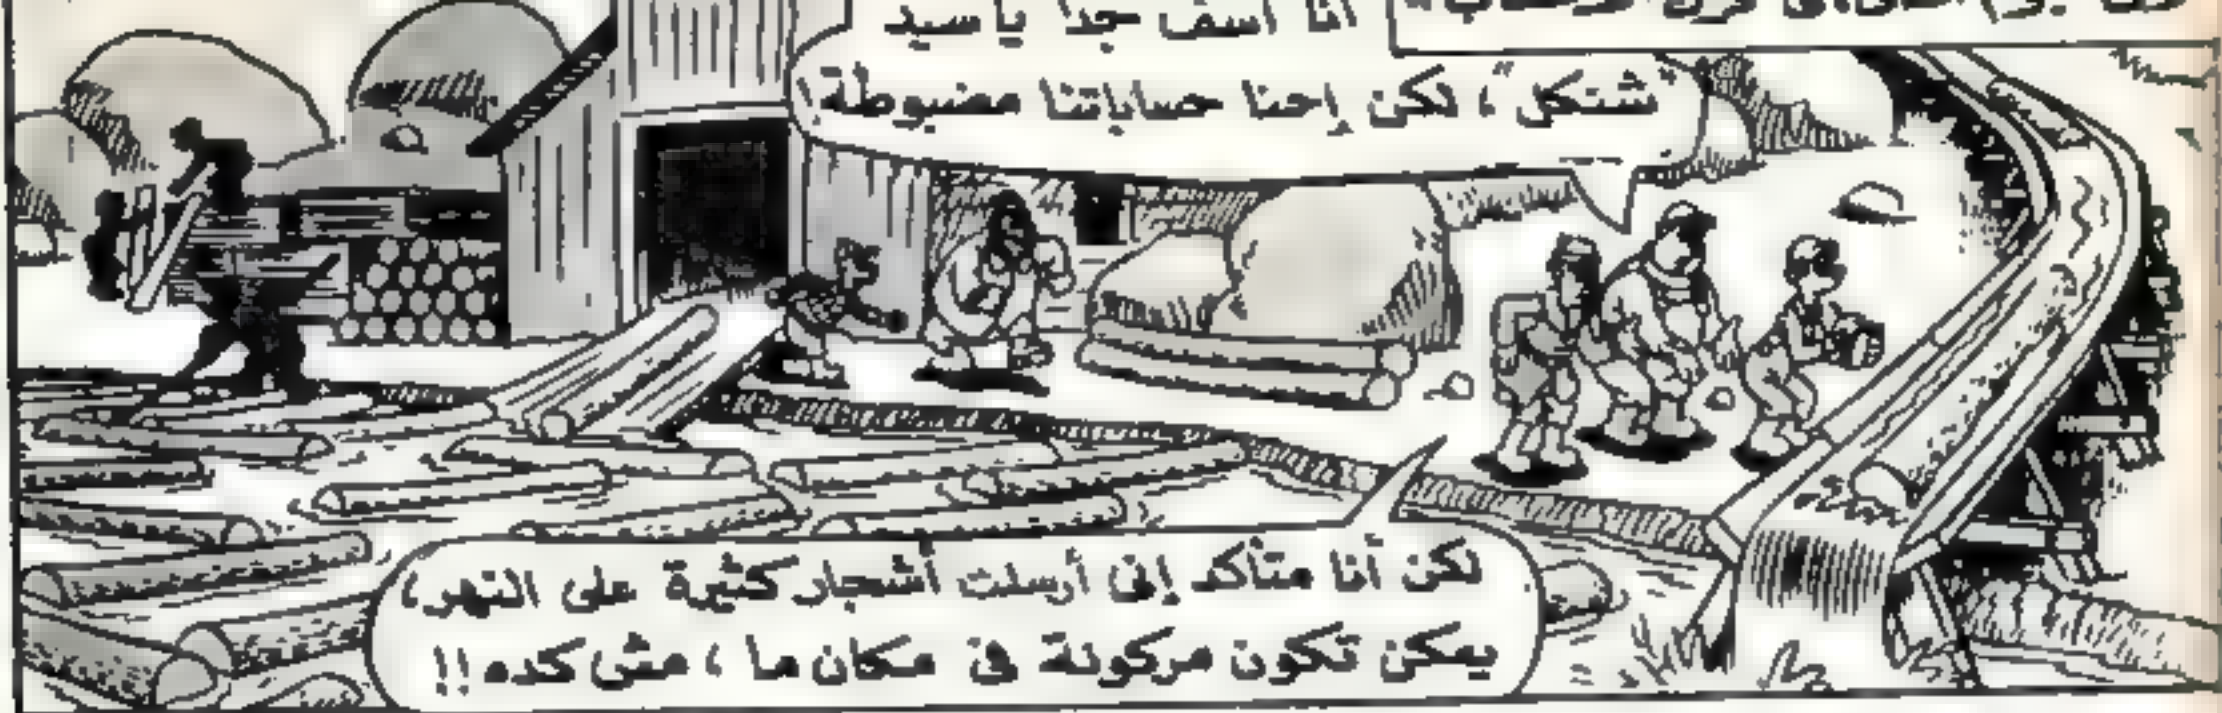 أنا آسف جدا يا سيد
"شنكل"، لكن إحنا حساباتنا مضبوطة!
لكن أنا متأكد إنى أرسلت أشجار كثيرة على النهر،
يمكن تكون مركونة فى مكان ما، مش كده!!